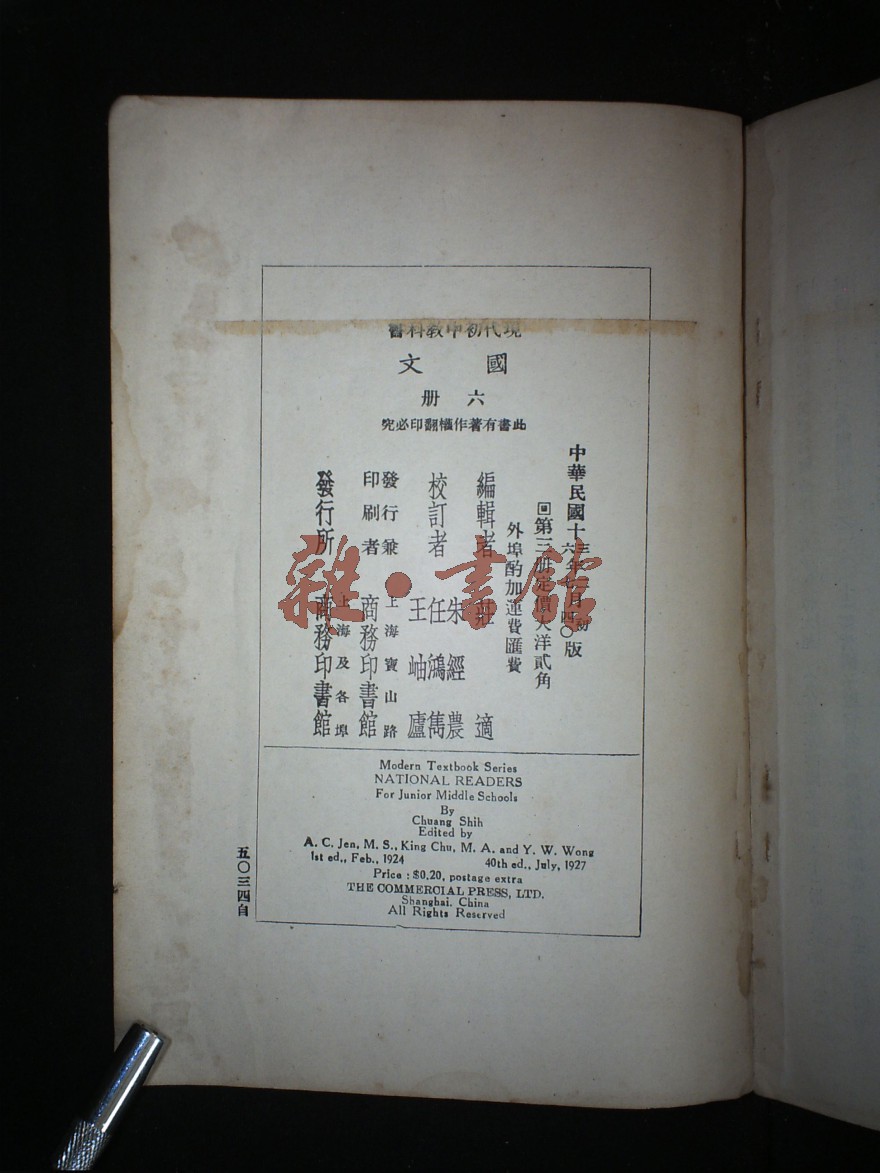 現代初中教科書
國文
六冊
此書有著作權翻印必究
中華民國十三年二月初版
六年七月四〇版
回第三册定價大洋貳角
外埠酌加運費匯費
編輯者 莊適
校訂者 朱經農
任鴻雋
王岫廬
發行兼印刷者 上海寶山路
商務印書館
發行所 上海及各埠
商務印書館
雜·書館
Modern Textbook Series
NATIONAL READERS
For Junior Middle Schools
By
Chuang Shih
Edited by
A. C. Jen, M. S., King Chu, M. A. and Y. W. Wong
1st ed., Feb., 1924 40th ed., July, 1927
Price : $0.20, postage extra
THE COMMERCIAL PRESS, LTD.
Shanghai, China
All Rights Reserved
五〇三四自